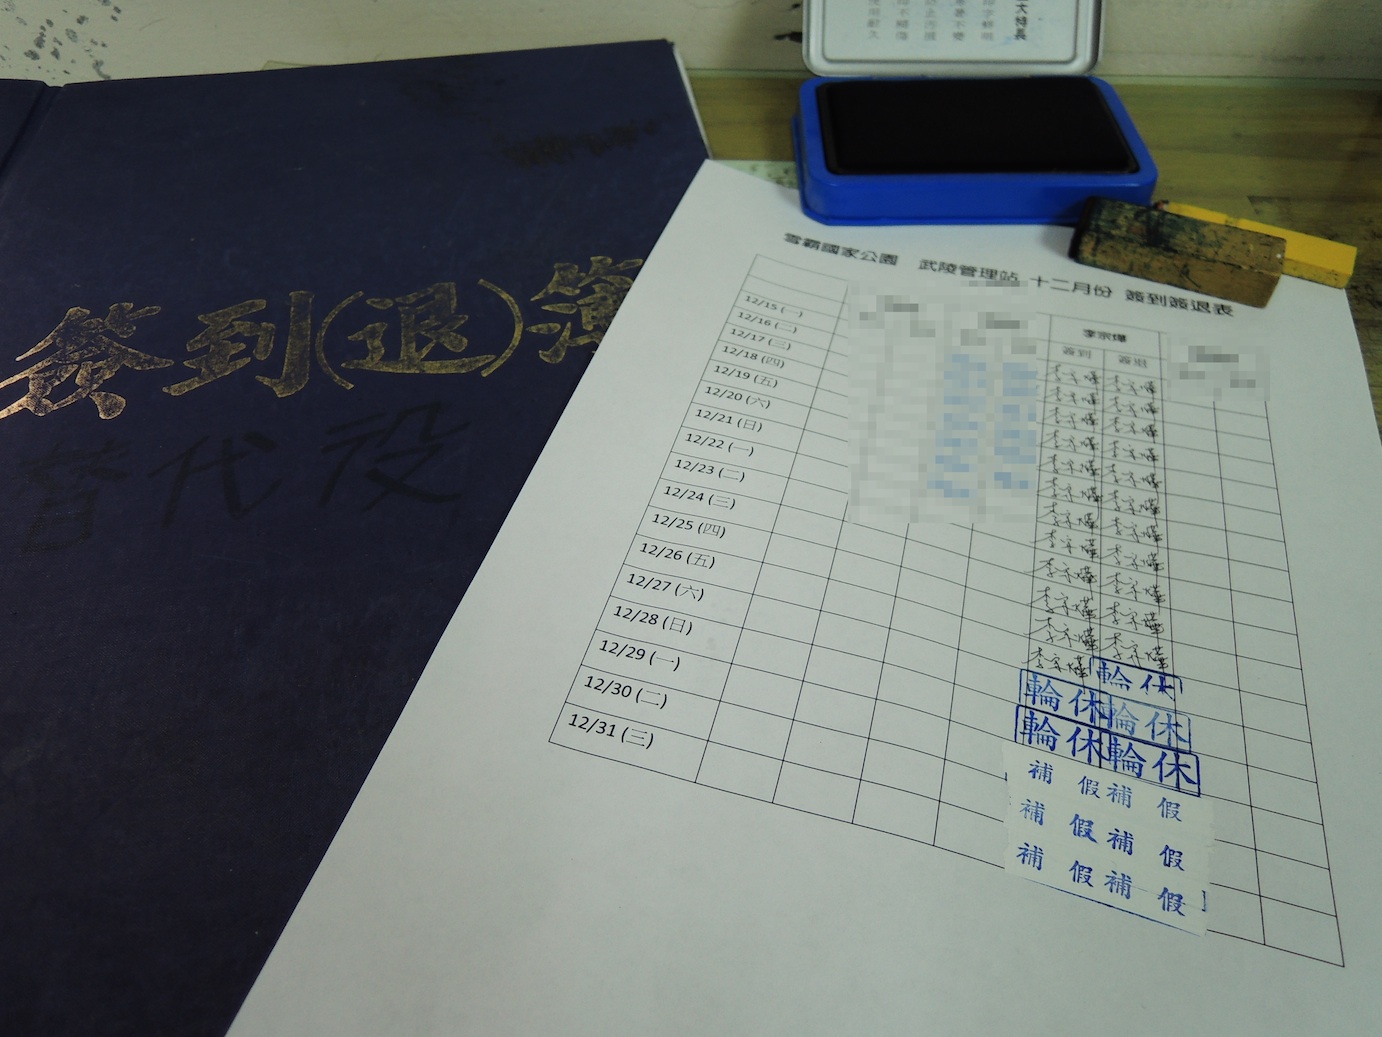 大特長
簽到(退)簿
替代役
雪霸國家公園 武陵管理站 十二月份 簽到簽退表
李宗燁
簽到 簽退
12/15 (一) 李宗燁 李宗燁
12/16 (二) 李宗燁 李宗燁
12/17 (三) 李宗燁 李宗燁
12/18 (四) 李宗燁 李宗燁
12/19 (五) 李宗燁 李宗燁
12/20 (六) 李宗燁 李宗燁
12/21 (日) 李宗燁 李宗燁
12/22 (一) 李宗燁 李宗燁
12/23 (二) 李宗燁 李宗燁
12/24 (三) 李宗燁 李宗燁
12/25 (四) 李宗燁 李宗燁
12/26 (五) 李宗燁 輪休
12/27 (六) 輪休 輪休
12/28 (日) 輪休 輪休
12/29 (一) 補假 補假
12/30 (二) 補假 補假
12/31 (三) 補假 補假